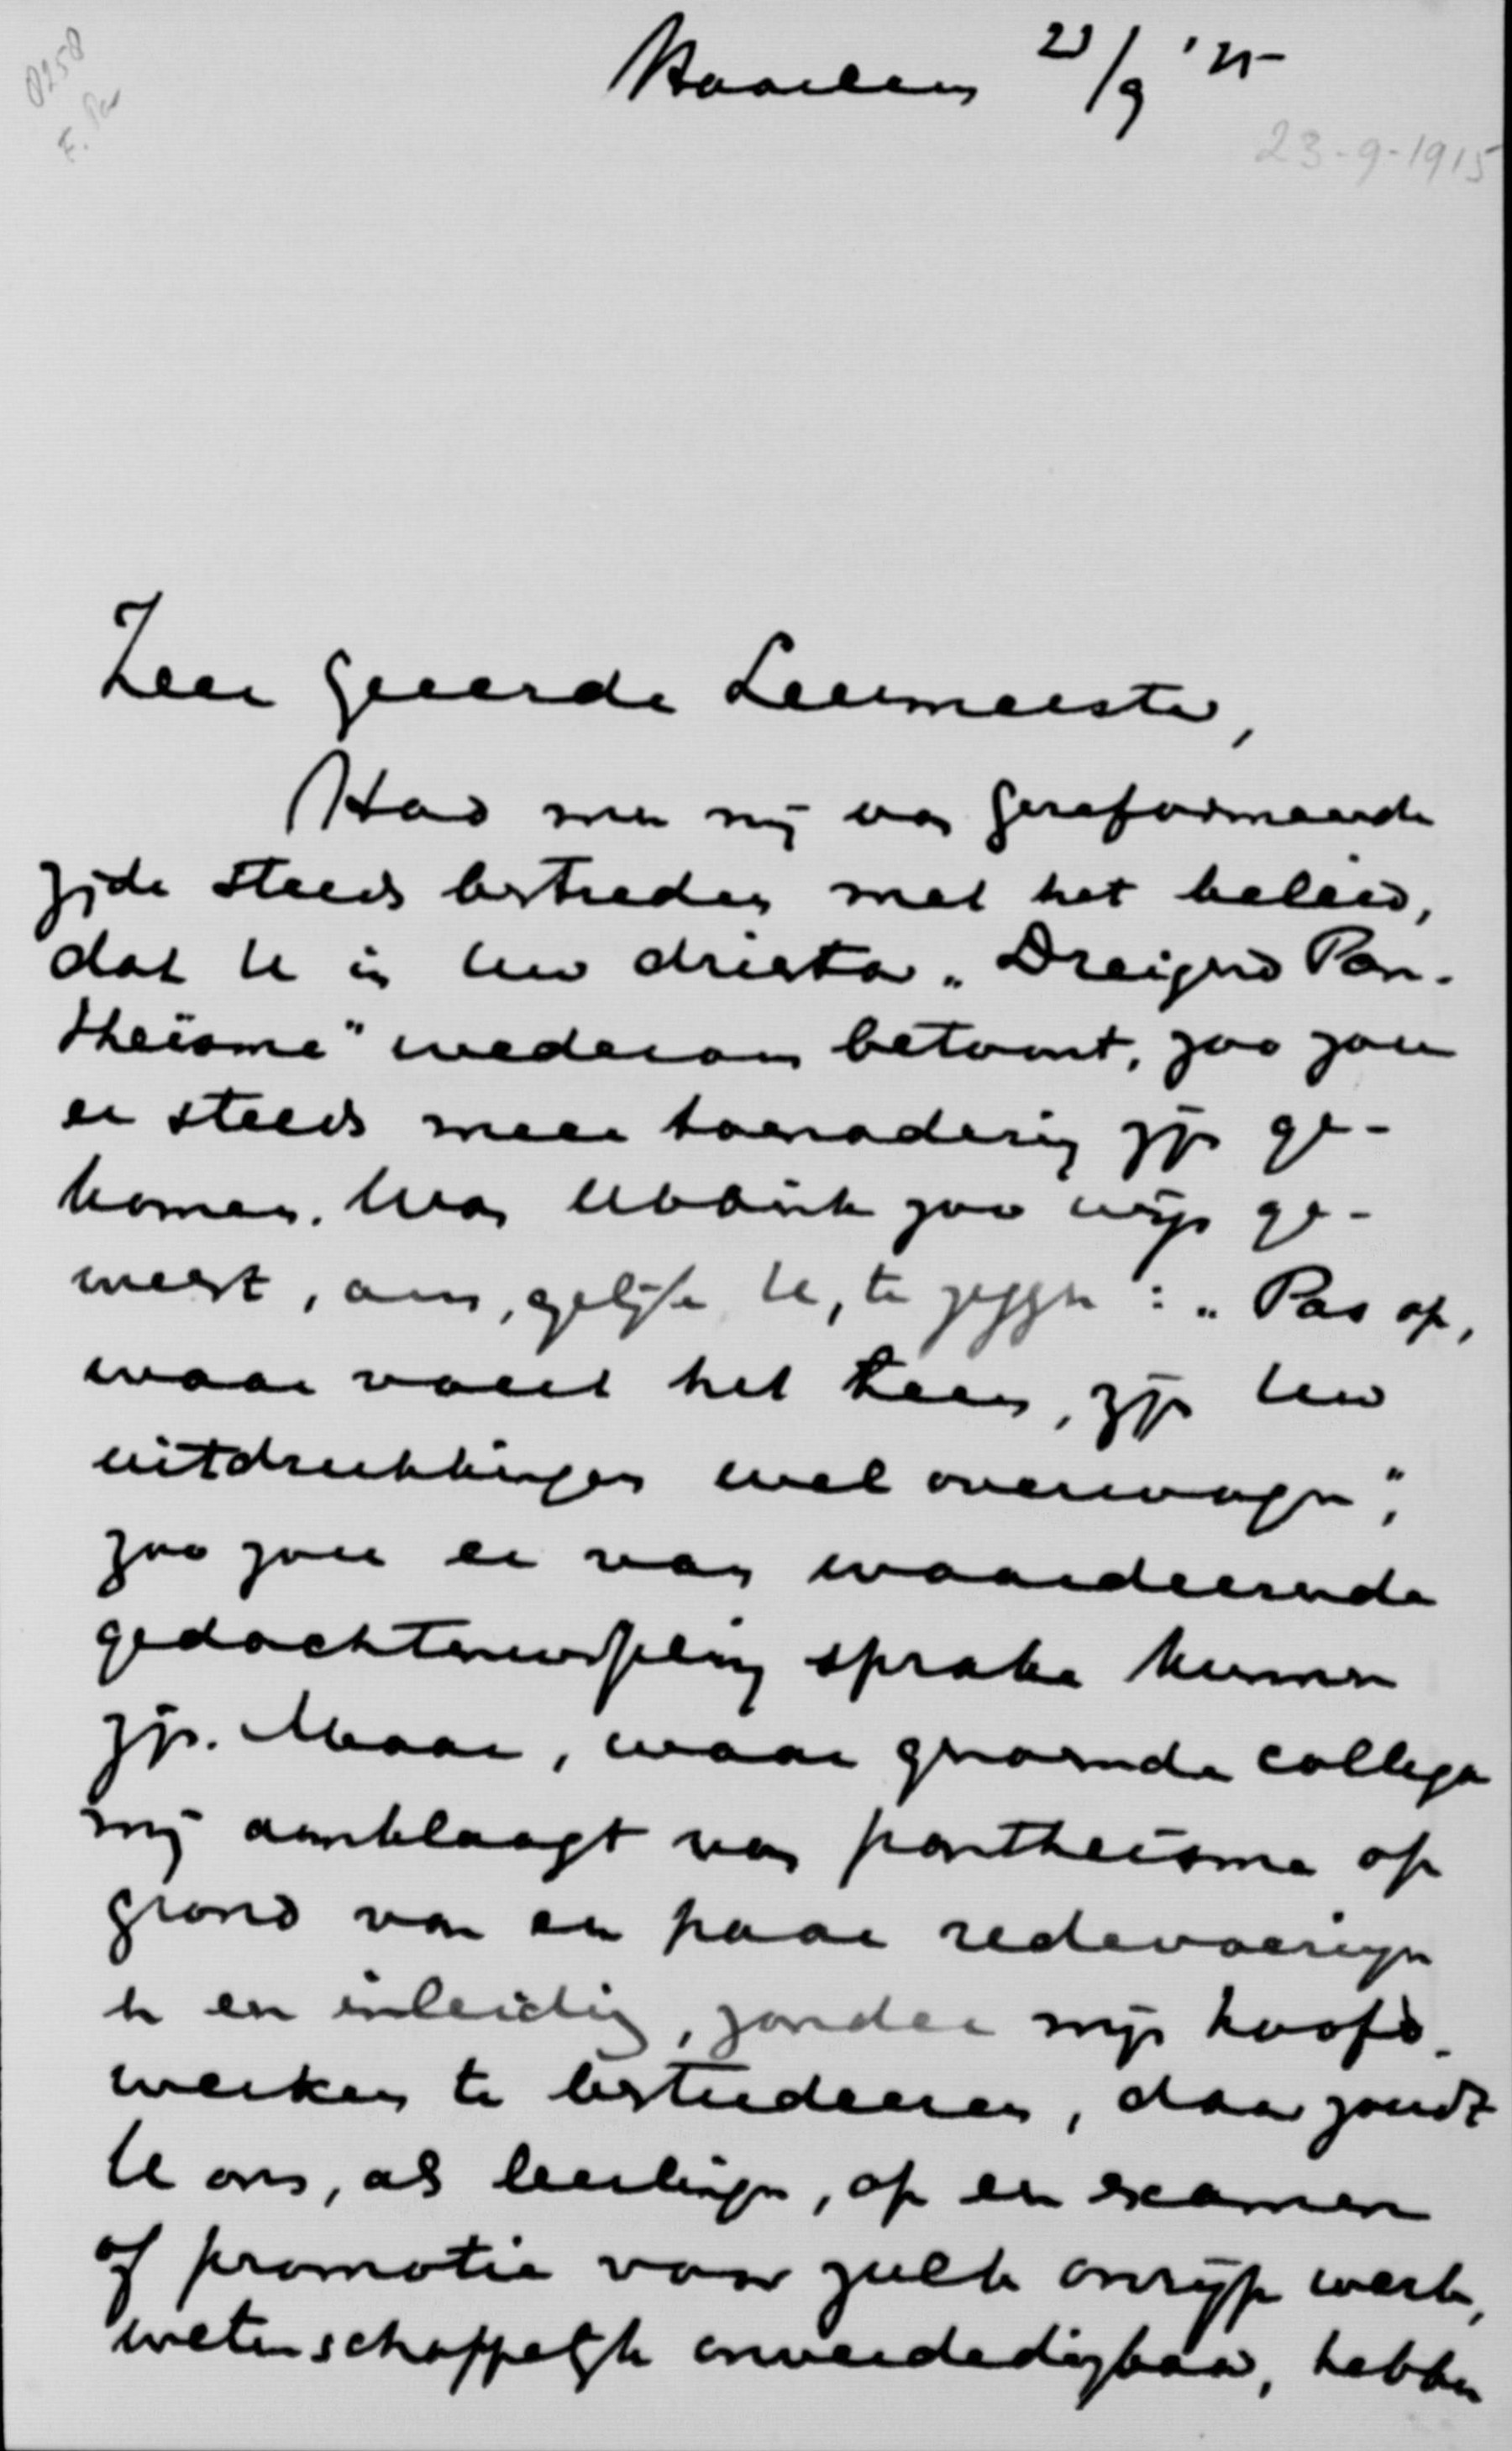 0258
Haarlem 23/9 '15
23-9-1915
Zeer geeerde Leermeester,
Had men mij van gereformeerde
zijde steeds bestreden met het beleid,
dat U in Uw driestar „Dreigend Pan-
theïsme" wederom betoont, zoo zou
er steeds meer toenadering zijn ge-
komen. Was Ubbink zoo wijs ge-
weest, om, gelijk U, te zeggen: „Pas op,
waar voert het heen, zijn Uw
uitdrukkingen wel overwogen",
zoo zou er van waardeerende
gedachtenwisseling sprake kunnen
zijn. Maar, waar genoemde collega
mij aanklaagt van pantheïsme op
grond van een paar redevoeringen
en een inleiding, zonder mijn hoofd-
werken te bestudeeren, daar zoudt
U ons, als leerlingen, op een examen
of promotie voor zulk onrijp werk,
wetenschappelijk onverdedigbaar, hebben